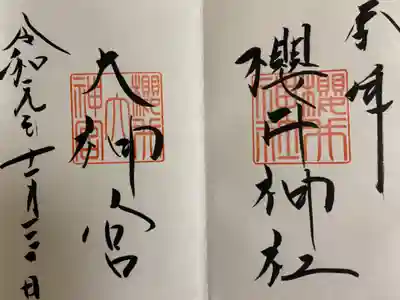 奉拝
櫻井神社
櫻井
神社
大神宮
櫻井
大
神宮
令和元年十一月 日